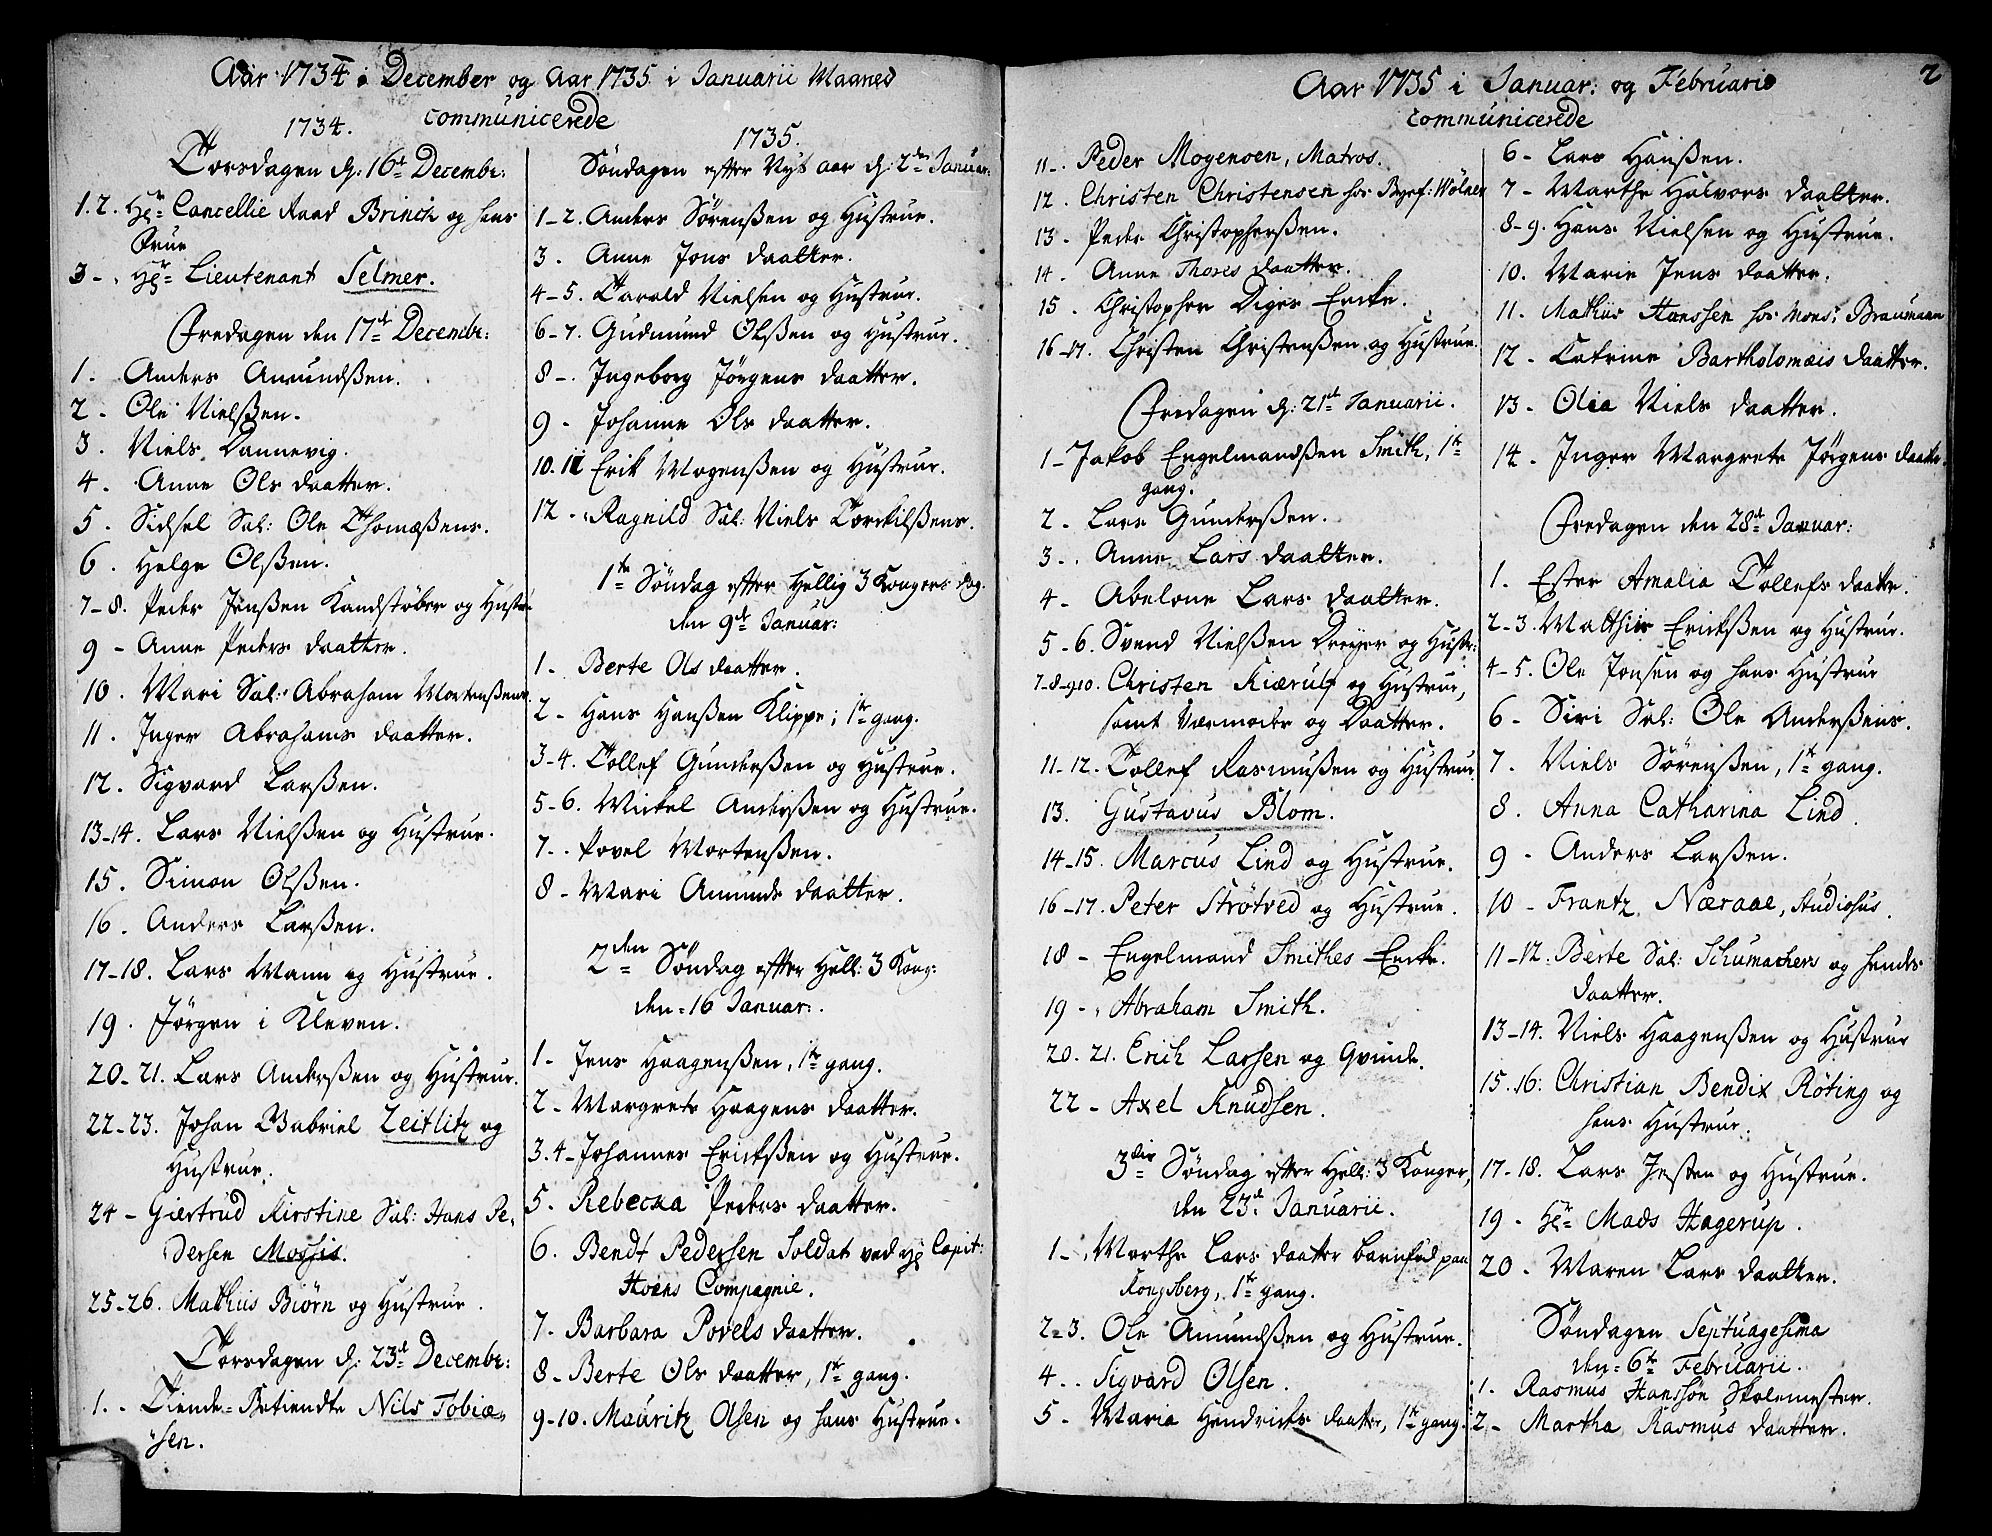 Aar 1734 i December og Aar 1735 i Januarii Maaned
communicerede
1734.
Torsdagen d: 16de Decembr:
1.2. Hr Cancellie Raad Brinck og hans
Frue
3 - Hr Lieutenant Selmer.
Fredagen den 17de Decembr:
1. Anders Amundßen.
2 - Ole Nielßen.
3. Niels Dannevig.
4. Anne Ols daatter.
5. Sidsel Sal: Ole Thomæßens.
6. Helge Olßen.
7-8. Peder Jenßen Kandstøber og Hustr:
9 - Anne Peders daatter.
10. Mari Sal: Abraham Mortenßens
11. Inger Abrahams daatter.
12. Sigvard Larßen.
13-14. Lars Nielßen og Hustrue.
15. Simon Olßen.
16. Anders Larßen.
17-18. Lars Mann og Hustrue.
19. Jørgen i Kleven.
20-21. Lars Anderßen og Hustrue.
22-23. Johan Gabriel Zeitlitz og
Hustrue.
24 - Giertrud Kirstine Sal: Hans Pe-
dersen Mossis.
25-26. Mathius Biørn og Hustrue.
Torsdagen d: 23de Decembr:
1. - Tiende-Betiendte Nils Tobiæ-
sen.
1735.
Søndagen efter Nyt aar d: 2den Januar:
1-2. Anders Sørenßen og Hustrue.
3. Anne Jens daatter.
4-5. Tarald Nielsen og Hustrue.
6-7. Gudmund Olßen og Hustrue.
8 - Ingeborg Jørgens daatter.
9 - Johanne Ols daatter.
10.11 Erik Mogenßen og Hustrue.
12 - Ragnild Sal: Niels Torkilßens.
1te Søndag efter Hellig 3 Kongers dag.
den 9de Januar:
1 - Berte Ols daatter.
2 - Hans Hanßen Klippe; 1te gang.
3-4. Tollef Gunderßen og Hustrue.
5-6. Mickel Anderßen og Hustrue.
7. Povel Mortenßen.
8 - Mari Amunds daatter.
2den Søndag efter Hell: 3 Kong:
den 16 Januar:
1 - Jens Haagenßen, 1te gang.
2 - Margrete Haagens daatter.
3.4 - Johannes Erickßen og Hustrue.
5. Rebecka Peders daatter.
6. Bendt Pedersen Soldat ved Hr Capit:
Hoens Compagnie.
7. Barbara Povels daatter.
8 - Berte Ols daatter, 1te gang.
9-10. Mauritz Olsen og hans Hustrue.
Aar 1735 i Januar: og Februarii
communicerede
2
11. Peder Mogensen, Matros.
12. Christen Christensen hos Byef: Wølner
13. Peder Christopherßen.
14. Anne Thores daatter.
15. Christopher Diges Encke.
16-17. Christen Christenßen og Hustrue.
Fredagen d: 21de Januarii.
1 - Jakob Engelmandßen Smith, 1te
gang.
2 - Lars Gunderßen.
3. Anne Lars daatter.
4 - Abelone Lars daatter.
5-6. Svend Nielßen Dreyer og Hustr:
7-8-9-10. Christen Kiærulf og Hustrue,
samt Værmoder og Daatter.
11-12. Tollef Rasmußen og Hustrue
13. Gustavus Blom.
14-15. Marcus Lind og Hustrue.
16-17. Peter Strøtved og Hustrue.
18 - Engelmand Smithes Encke.
19 - Abraham Smith.
20. 21. Erich Larsen og Qvinde.
22 - Axel Knudsen.
3die Søndag efter Hell: 3 Konger,
den 23de Januarii.
1 - Marthe Lars daatter barnfød paa
Kongsberg, 1te gang.
2-3. Ole Amundßen og Hustrue.
4. Sigvard Olsen.
5 - Maria Hendricks daatter, 1te gang.
6 - Lars Hanßen.
7 - Marthe Halvors daatter.
8-9. Hans Nielsen og Hustrue.
10. Marie Jens daatter.
11. Mathius Hanssen hos Monsr Braumann
12 - Catrine Bartholomæis daatter.
13 - Olea Niels daatter.
14 - Inger Margrete Jørgens daatter.
Fredagen den 28de Januar:
1. Ester Amalia Tollefs daatter.
2-3. Matthis Erickßen og Hustrue.
4-5. Ole Jensen og hans Hustrue
6 - Siri Sal: Ole Anderßens.
7. Niels Sørenßen, 1te gang.
8. Anna Catharina Lind.
9 - Anders Larßen.
10 - Frantz Næraae, Studiosus.
11-12. Berte Sal: Schumachers og hendes
daatter.
13-14. Niels Haagenßen og Hustrue
15.16. Christian Bendix Røting og
hans Hustrue.
17-18. Lars Jesten og Hustrue.
19 - Hr Mads Hagerup.
20 - Maren Lars daatter.
Søndagen Septuagesima
den 6te Februarii.
1. Rasmus Hanssøn Skolemester.
2 - Martha Rasmus daatter.